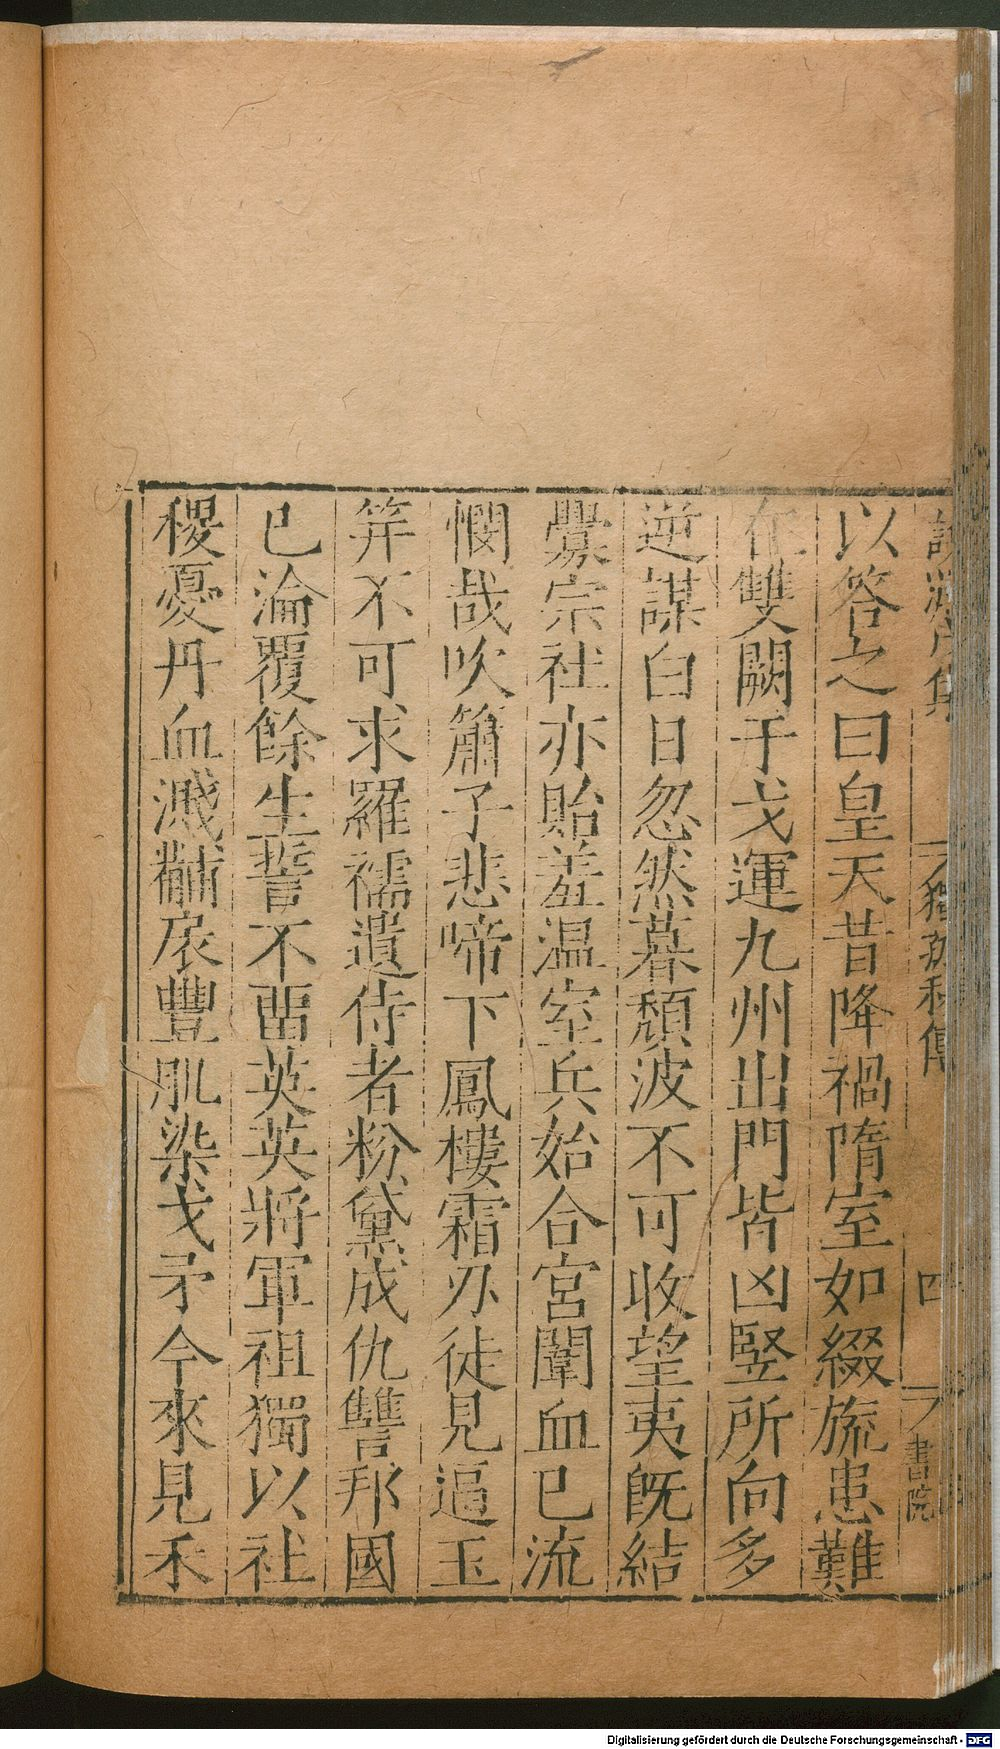 說淵戊集
獨孤穆傳
四
書院
以答之曰皇天昔降禍隋室如綴旒患難
在雙闕干戈運九州出門皆凶竪所向多
逆謀白日忽然暮頹波不可收望夷旣結
釁宗社亦貽羞温室兵始合宮闈血已流
憫哉吹簫子悲啼下鳳樓霜刃徒見逼玉
筓不可求羅襦遺侍者粉黛成仇讐邦國
已淪覆餘生誓不畱英英將軍祖獨以社
稷憂丹血濺黼扆豐肌染戈矛今來見禾
Digitalisierung gefördert durch die Deutsche Forschungsgemeinschaft - DFG